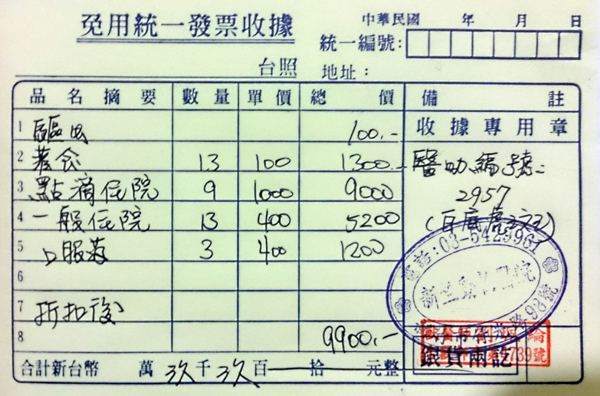 免用統一發票收據
中華民國 年 月 日
統一編號:
台照 地址:
品名摘要 數量 單價 總價 備註
1 驅虫 100.-
收據專用章
2 蕃食 13 100 1300.-
醫助編號:
3 點滴住院 9 1000 9000
2957
4 一般住院 13 400 5200
5 口服葯 3 400 1200
電話:03-5429961
6
新竺動物醫院
7 折扣後
路98號
8 9900.-
銀貨兩訖
739號
合計新台幣 萬 玖 千 玖 百 拾 元整